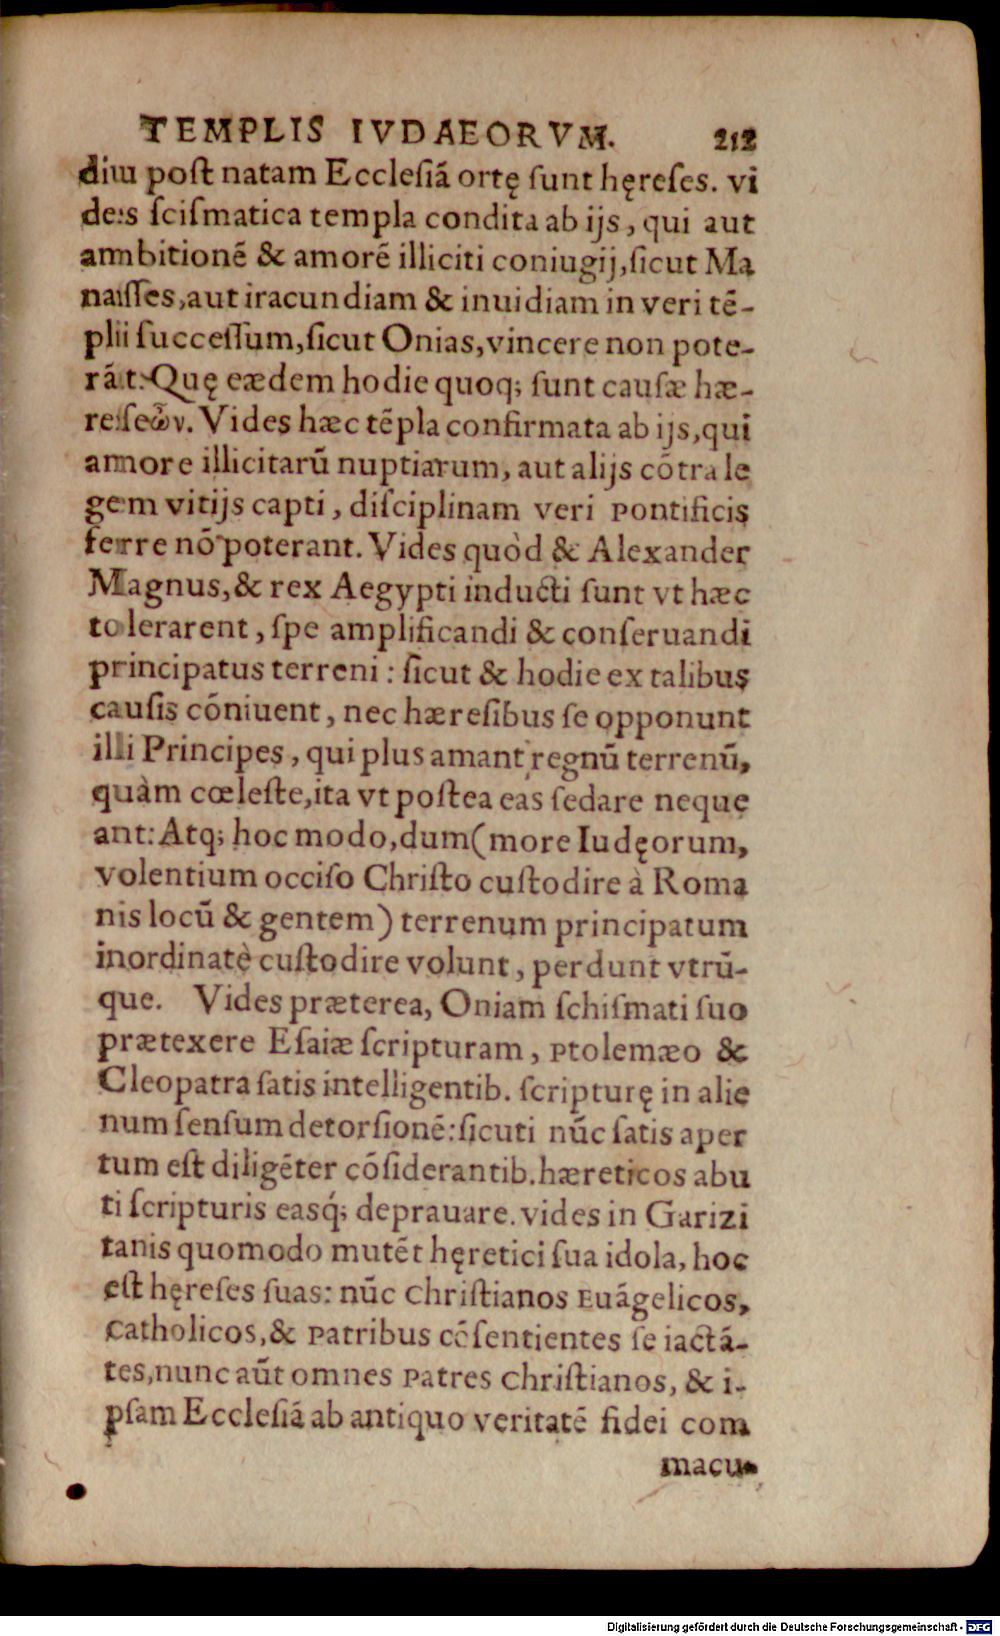 TEMPLIS IVDAEORVM. 212
diu post natam Ecclesiã ortę sunt hęreses. vi
des scismatica templa condita ab ijs, qui aut
ambitionẽ & amorẽ illiciti coniugij, sicut Ma
nasses, aut iracundiam & inuidiam in veri tẽ-
pli successum, sicut Onias, vincere non pote-
rãt. Quę eædem hodie quoq; sunt causæ hæ-
reseῶν. Vides hæc tẽpla confirmata ab ijs, qui
amore illicitarũ nuptiarum, aut alijs cõtra le
gem vitijs capti, disciplinam veri Pontificis
ferre nõ poterant. Vides quòd & Alexander
Magnus, & rex Aegypti inducti sunt vt hæc
tolerarent, spe amplificandi & conseruandi
principatus terreni: sicut & hodie ex talibus
causis cõniuent, nec hæresibus se opponunt
illi Principes, qui plus amant regnũ terrenũ,
quàm cœleste, ita vt postea eas sedare neque
ant: Atq; hoc modo, dum (more Iudęorum,
volentium occiso Christo custodire à Roma
nis locũ & gentem) terrenum principatum
inordinatè custodire volunt, perdunt vtrũ-
que. Vides præterea, Oniam schismati suo
prætexere Esaiæ scripturam, Ptolemæo &
Cleopatra satis intelligentib. scripturę in alie
num sensum detorsionẽ: sicuti nũc satis aper
tum est diligẽter cõsiderantib. hæreticos abu
ti scripturis easq́; deprauare. vides in Garizi
tanis quomodo mutẽt hęretici sua idola, hoc
est hęreses suas: nũc Christianos Euãgelicos,
Catholicos, & Patribus cõsentientes se iactã-
tes, nunc aũt omnes Patres Christianos, & i-
psam Ecclesiã ab antiquo veritatẽ fidei com
macu-
Digitalisierung gefördert durch die Deutsche Forschungsgemeinschaft - DFG